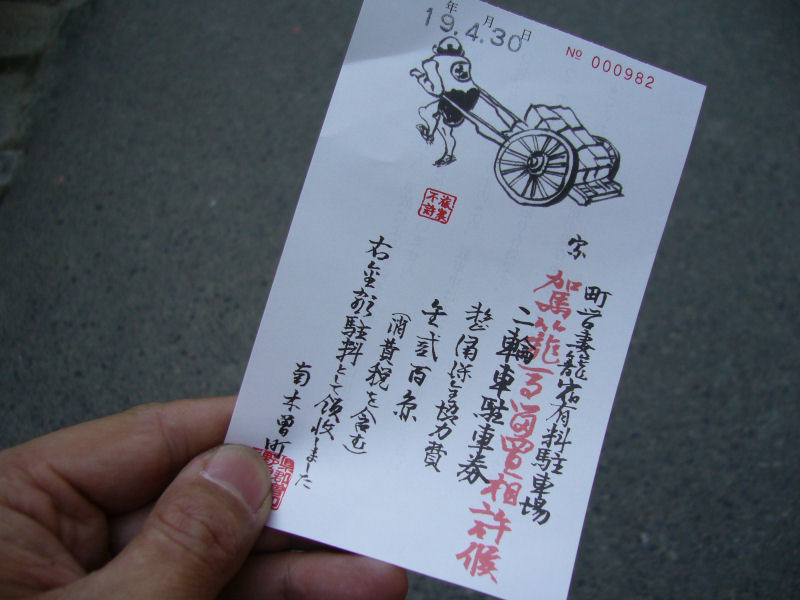 年 月 日
19.4.30
No 000982
町営妻籠宿有料駐車場
二輪車駐車券
整備保全協力費
金弐百円
(消費税を含む)
右金額駐料として領収しました
南木曽町